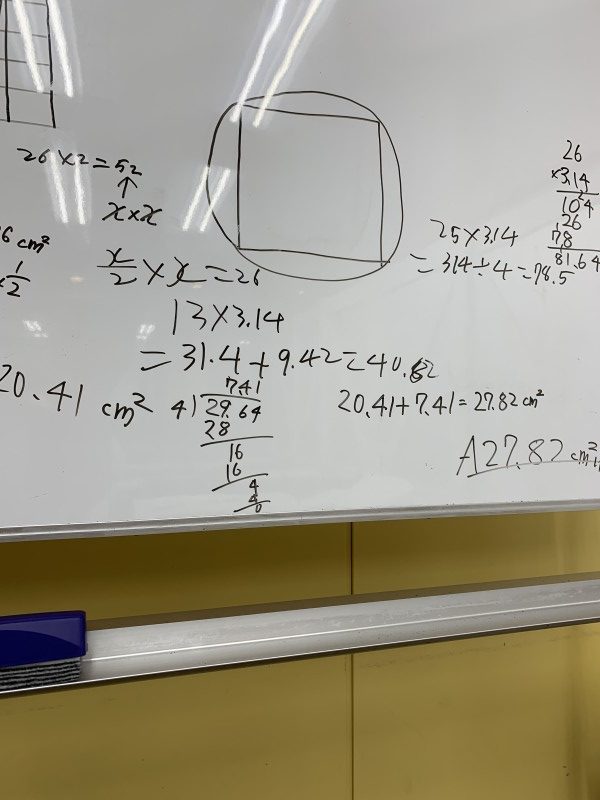 26×2=52
↑
x×x
6 cm²
×1/2
x/2 × x = 26
26
×3.14
104
26
78
81.64
25×3.14
=314÷4=78.5
13×3.14
=31.4+9.42=40.82
20.41 cm²
7.41
4)29.64
28
16
16
4
4
0
20.41+7.41=27.82 cm²
A 27.82 cm²